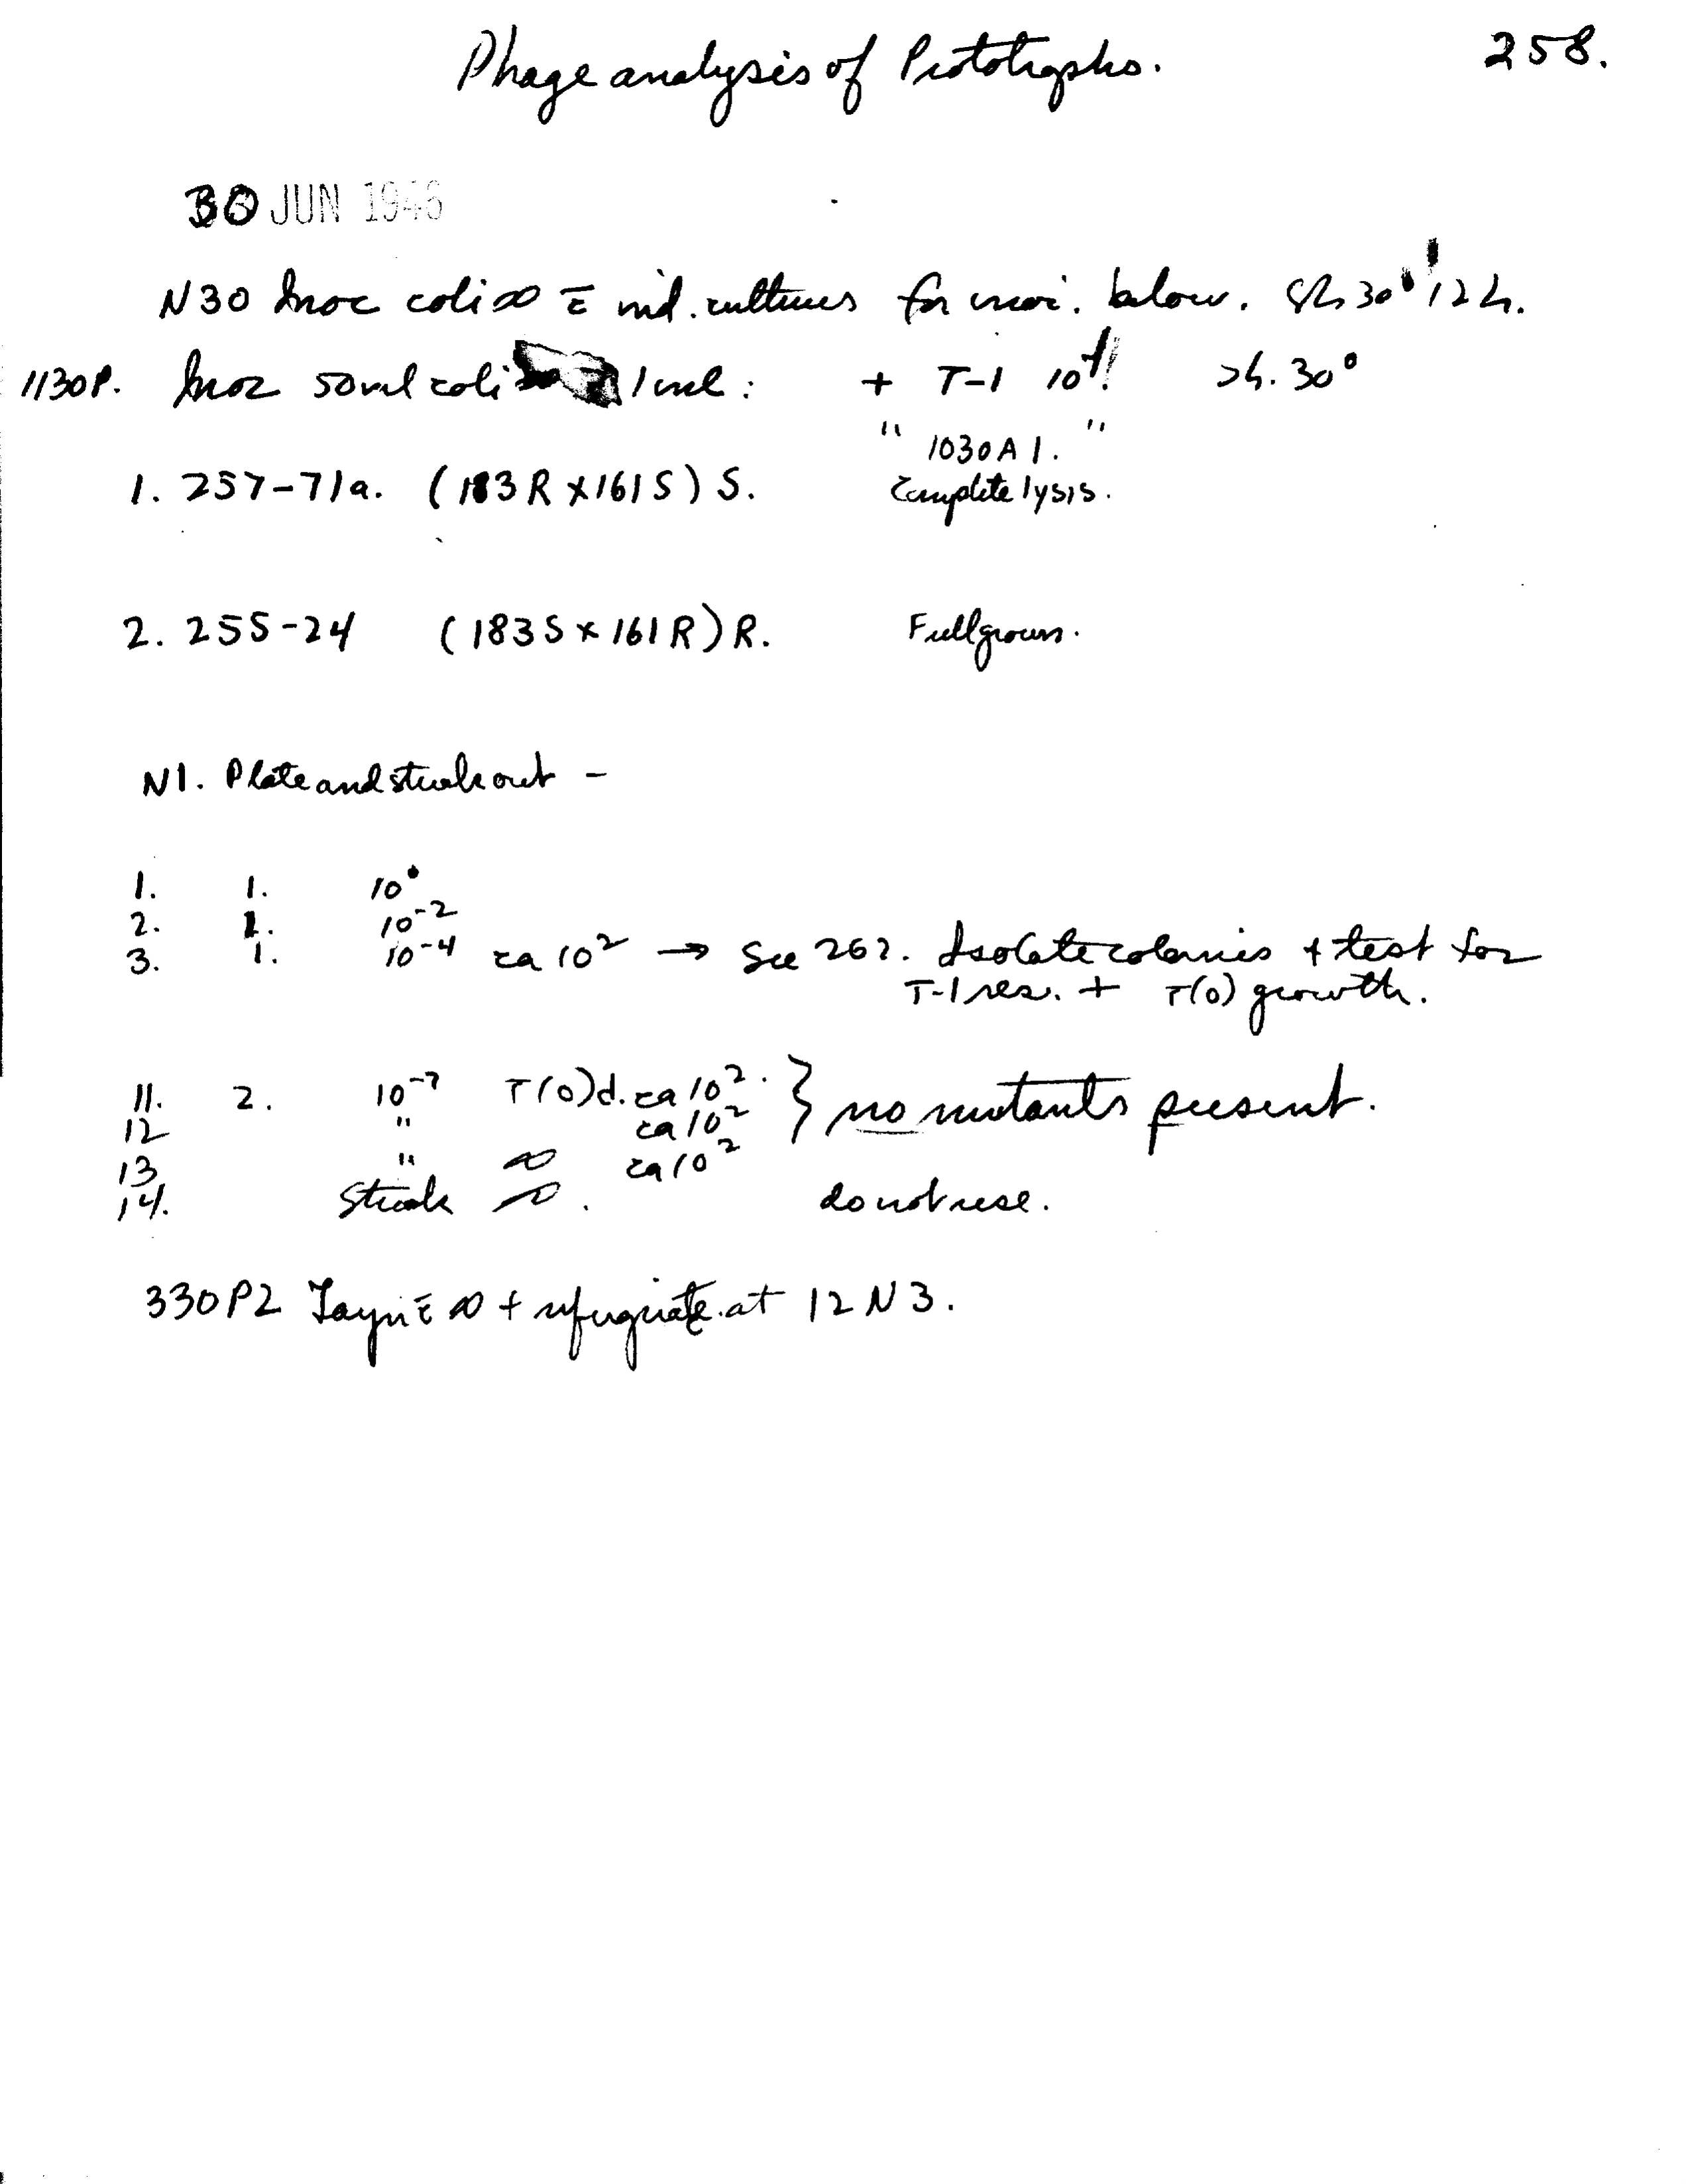 Phage analysis of Prototrophs. 258.
30 JUN 1946
N30 Inoc coli ∞ c̄ ind. cultures for inoc. below. Sh 30° 12 h.
1130P. Inoc 50ml coli 1 ml: + T-1 10 sh. 30°
" 1030A 1. "
1. 257-71a. (183R X 161S) S. Complete lysis.
2. 255-24 (183S x 161R) R. Full grown.
N1. Plate and streak out -
1. 1. 10
2. 1. 10⁻²
3. 1. 10⁻⁴ ca 10² → See 262. Isolate colonies + test for
T-1 res. + T(0) growth.
11. 2. 10⁻⁷ T(0)d. ca 10². } no mutants present.
12 " ca 10²
13 " ∞ ca 10²
14. Streak ∞. do not use.
330P2 Layer c̄ ∞ + refrigerate at 12 N 3.